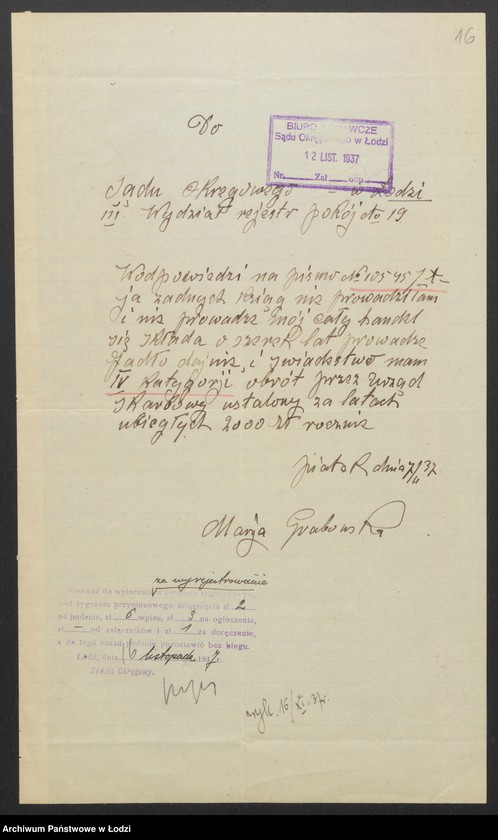 16
Do
BIURO PODAWCZE
Sądu Okręgowego w Łodzi
12 LIST. 1937
Nr. Zał. odp.
Sadu Okręgowego - w Łodzi
III Wydział rejestr pokój 19
Wodpowiedzi na pismo № 10545/X-
ja żadnych ksiąg nie prowadziłam
i nie prowadze mój cały handel
się składa o szerek lat prowadze
Jadłodajnie, i swiadectwo mam
IV kategorji obrót przez urząd
Skarbowy ustalony za latach
ubiegłych 2000 zł rocznie
piatek dnia 7/11 37
Marja Grabowska
za wyrejestrowanie
Wezwać do wpłacenia
pod rygorem przymusowego ściągnięcia zł. 2
od podania, zł 6 wpisu, zł 3 na ogłoszenia,
zł — od załączników i zł 1 za doręczenie,
a do tego czasu podanie pozostawić bez biegu.
Łódź, dnia 16 listopada 1937 r.
Sędzia Okręgowy.
wyk. 16/XI.37r.
Archiwum Państwowe w Łodzi